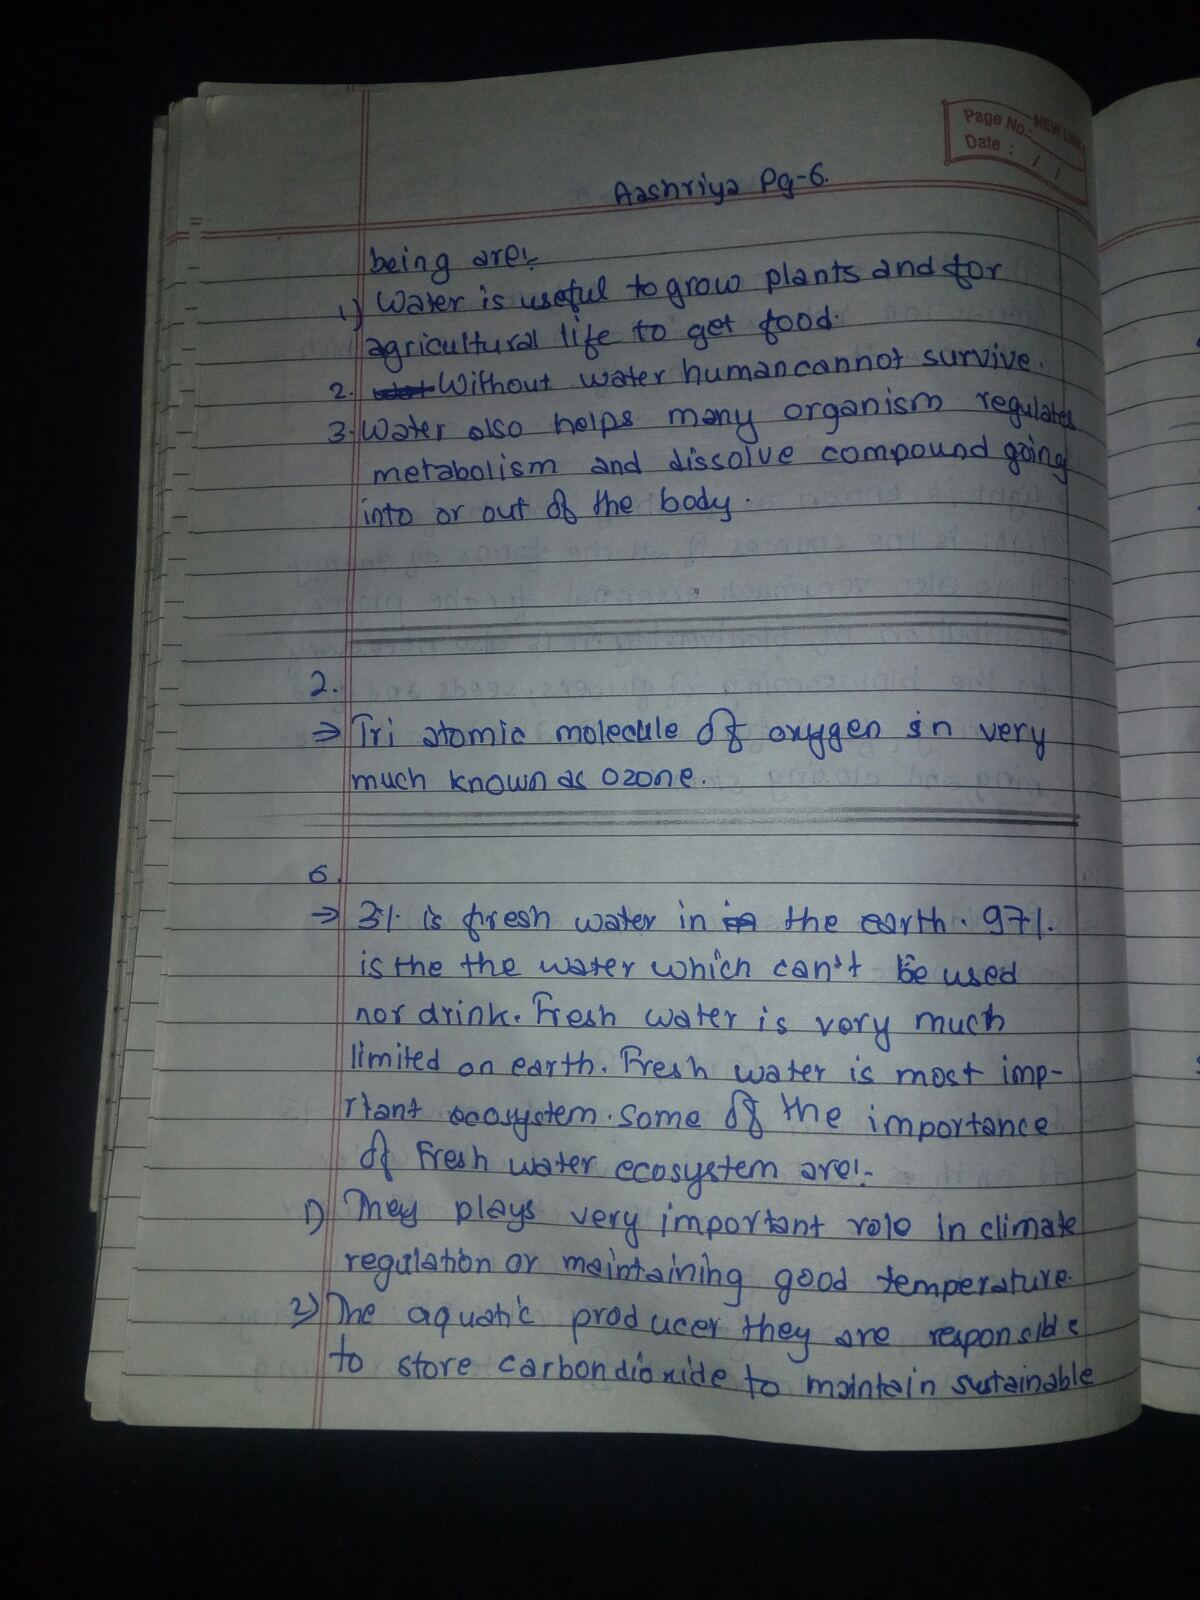 Page No.: NEW
Date : / /
Aashriya Pg-6.
being are:-
1) Water is useful to grow plants and for
agricultural life to get food.
2. Without water human cannot survive.
3. Water also helps many organism regulates
metabolism and dissolve compound going
into or out of the body.
2.
⇒ Tri atomic molecule of oxygen in very
much known as ozone.
6.
⇒ 3% is fresh water in the earth. 97%.
is the the water which can't be used
nor drink. Fresh water is very much
limited on earth. Fresh water is most imp-
rtant ecosystem. Some of the importance
of Fresh water ecosystem are:-
1) They plays very important role in climate
regulation or maintaining good temperature.
2) The aquatic producer they are responsible
to store carbondioxide to maintain sustainable